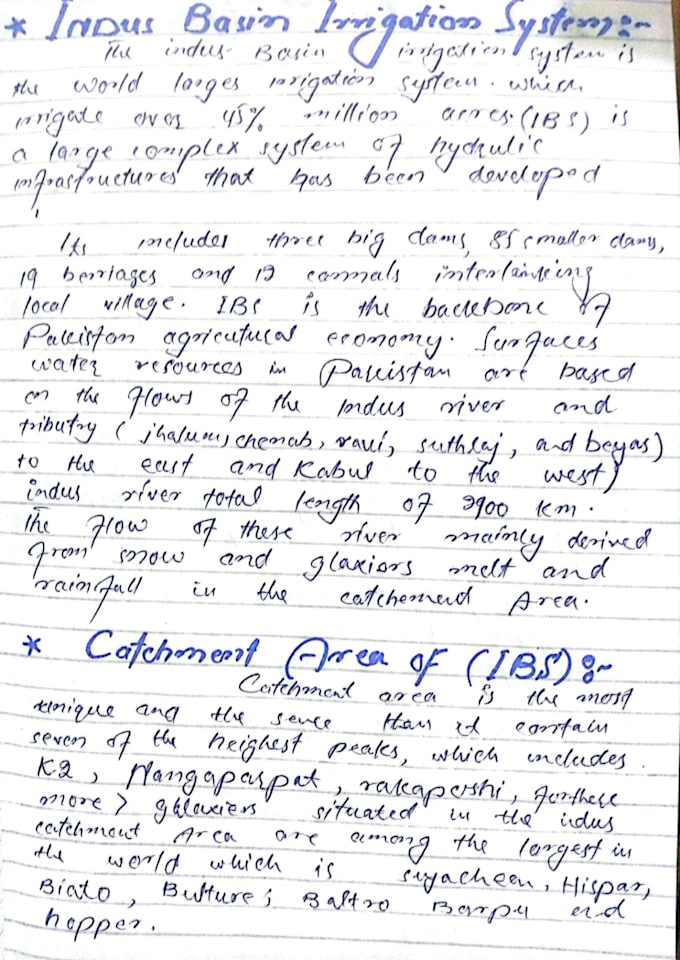 * Indus Basin Irrigation System:~
The indus Basin irrigation system is
the world larges irrigation system. which
irrigate over 45% million acres. (IBS) is
a large complex system of hydrulic
infrastructures that has been developed
Its includes three big dams, 85 smaller dams,
19 berriages and 12 cannals interlainking
local village. IBS is the backbone of
Pakistan agricutural economy. Surfaces
water resources in Pakistan are based
on the flows of the Indus river and
tributry (jhalum, chenab, ravi, suthlaj, and beyas)
to the east and Kabul to the west)
indus river total length of 2900 km.
The flow of these river mainly derived
from snow and glaxiors melt and
rainfall in the catchemend Area.
* Catchment Area of (IBS):~
Catchment area is the most
unique and the sence than it contain
seven of the heighest peaks, which includes.
K2, Nangaparpat, rakaposhi, furthere
more > glaxiers situated in the indus
catchment Area are among the largest in
the world which is siyacheen, Hispar,
Biato, Buture; Baltro Barpu and
hopper.